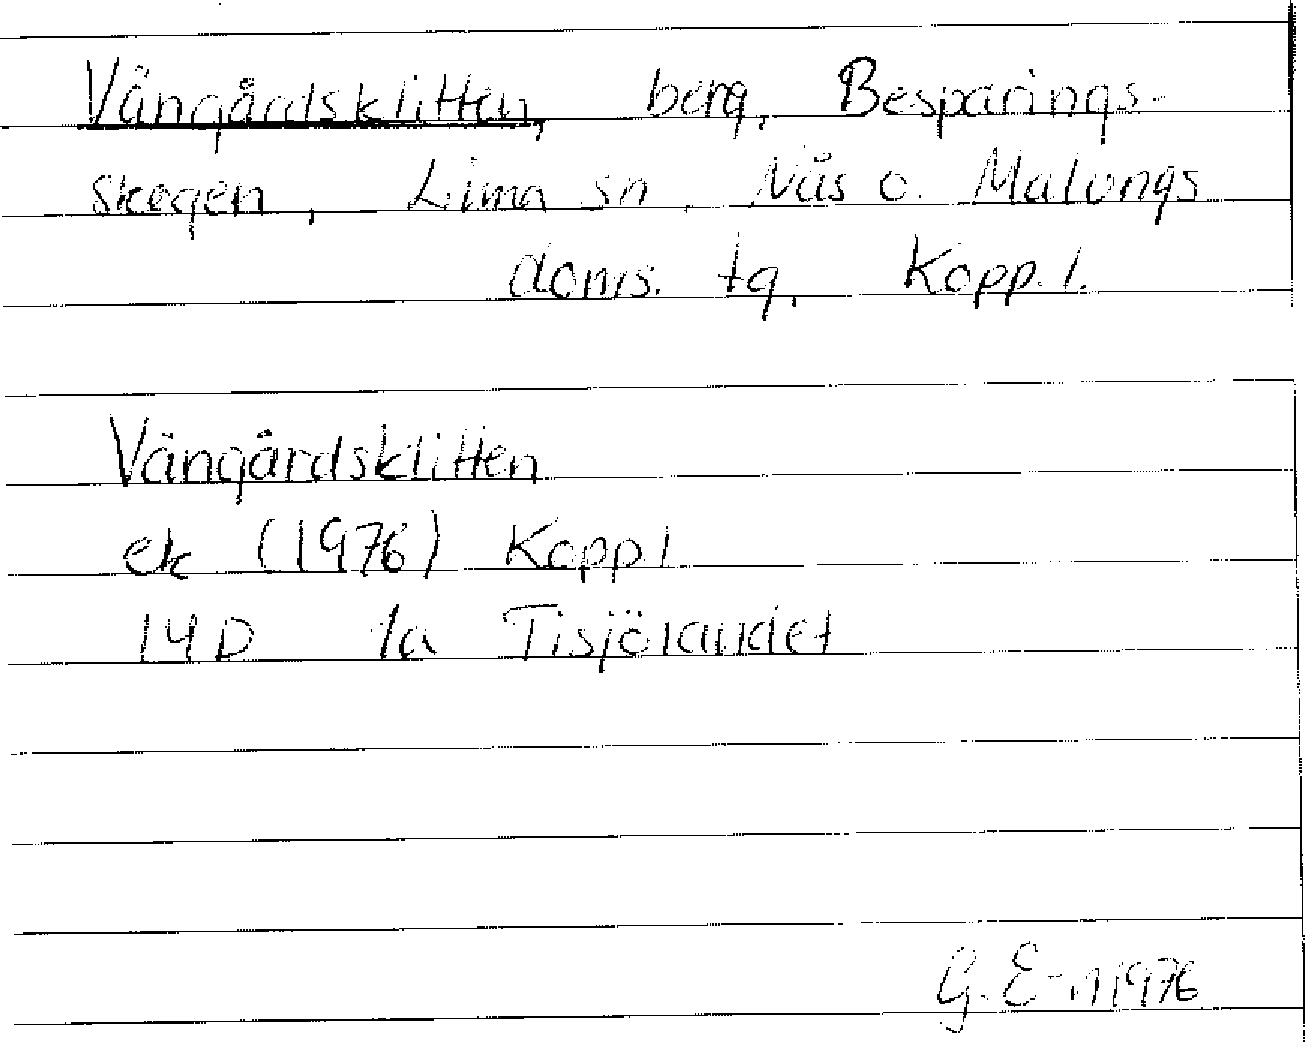 Vängårdsklitten, berg, Besparings-
skogen, Lima sn, Nås o. Malungs
doms. tg, Kopp. l.
Vängårdsklitten
ek (1976) Kopp l
14D 1a Tisjölandet
G. E-n 1976